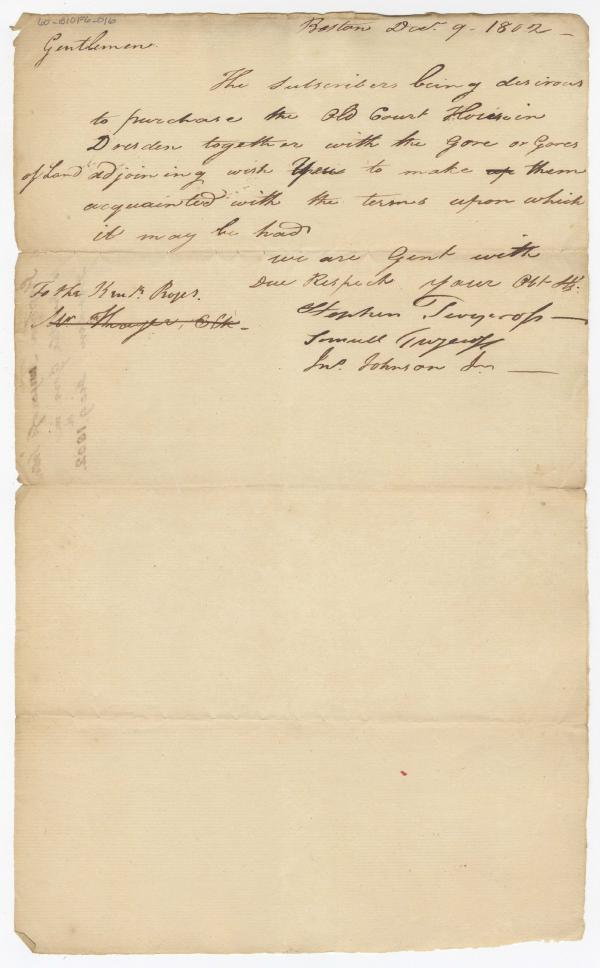 60-B10F6-016
Boston Decr. 9 - 1802 -
Gentlemen
The Subscribers being desirous
to purchase the Old Court House in
Dresden together with the Gore or Gores
of Land adjoining wish you to make them
acquainted with the terms upon which
it may be had
we are Gent with
Due Respect your Obt
To the Kenk. Propr.
Mr. Thayer, Clk -
Stephen Twycross -
Samuell Twycross
Jno. Johnson Jr -
1802